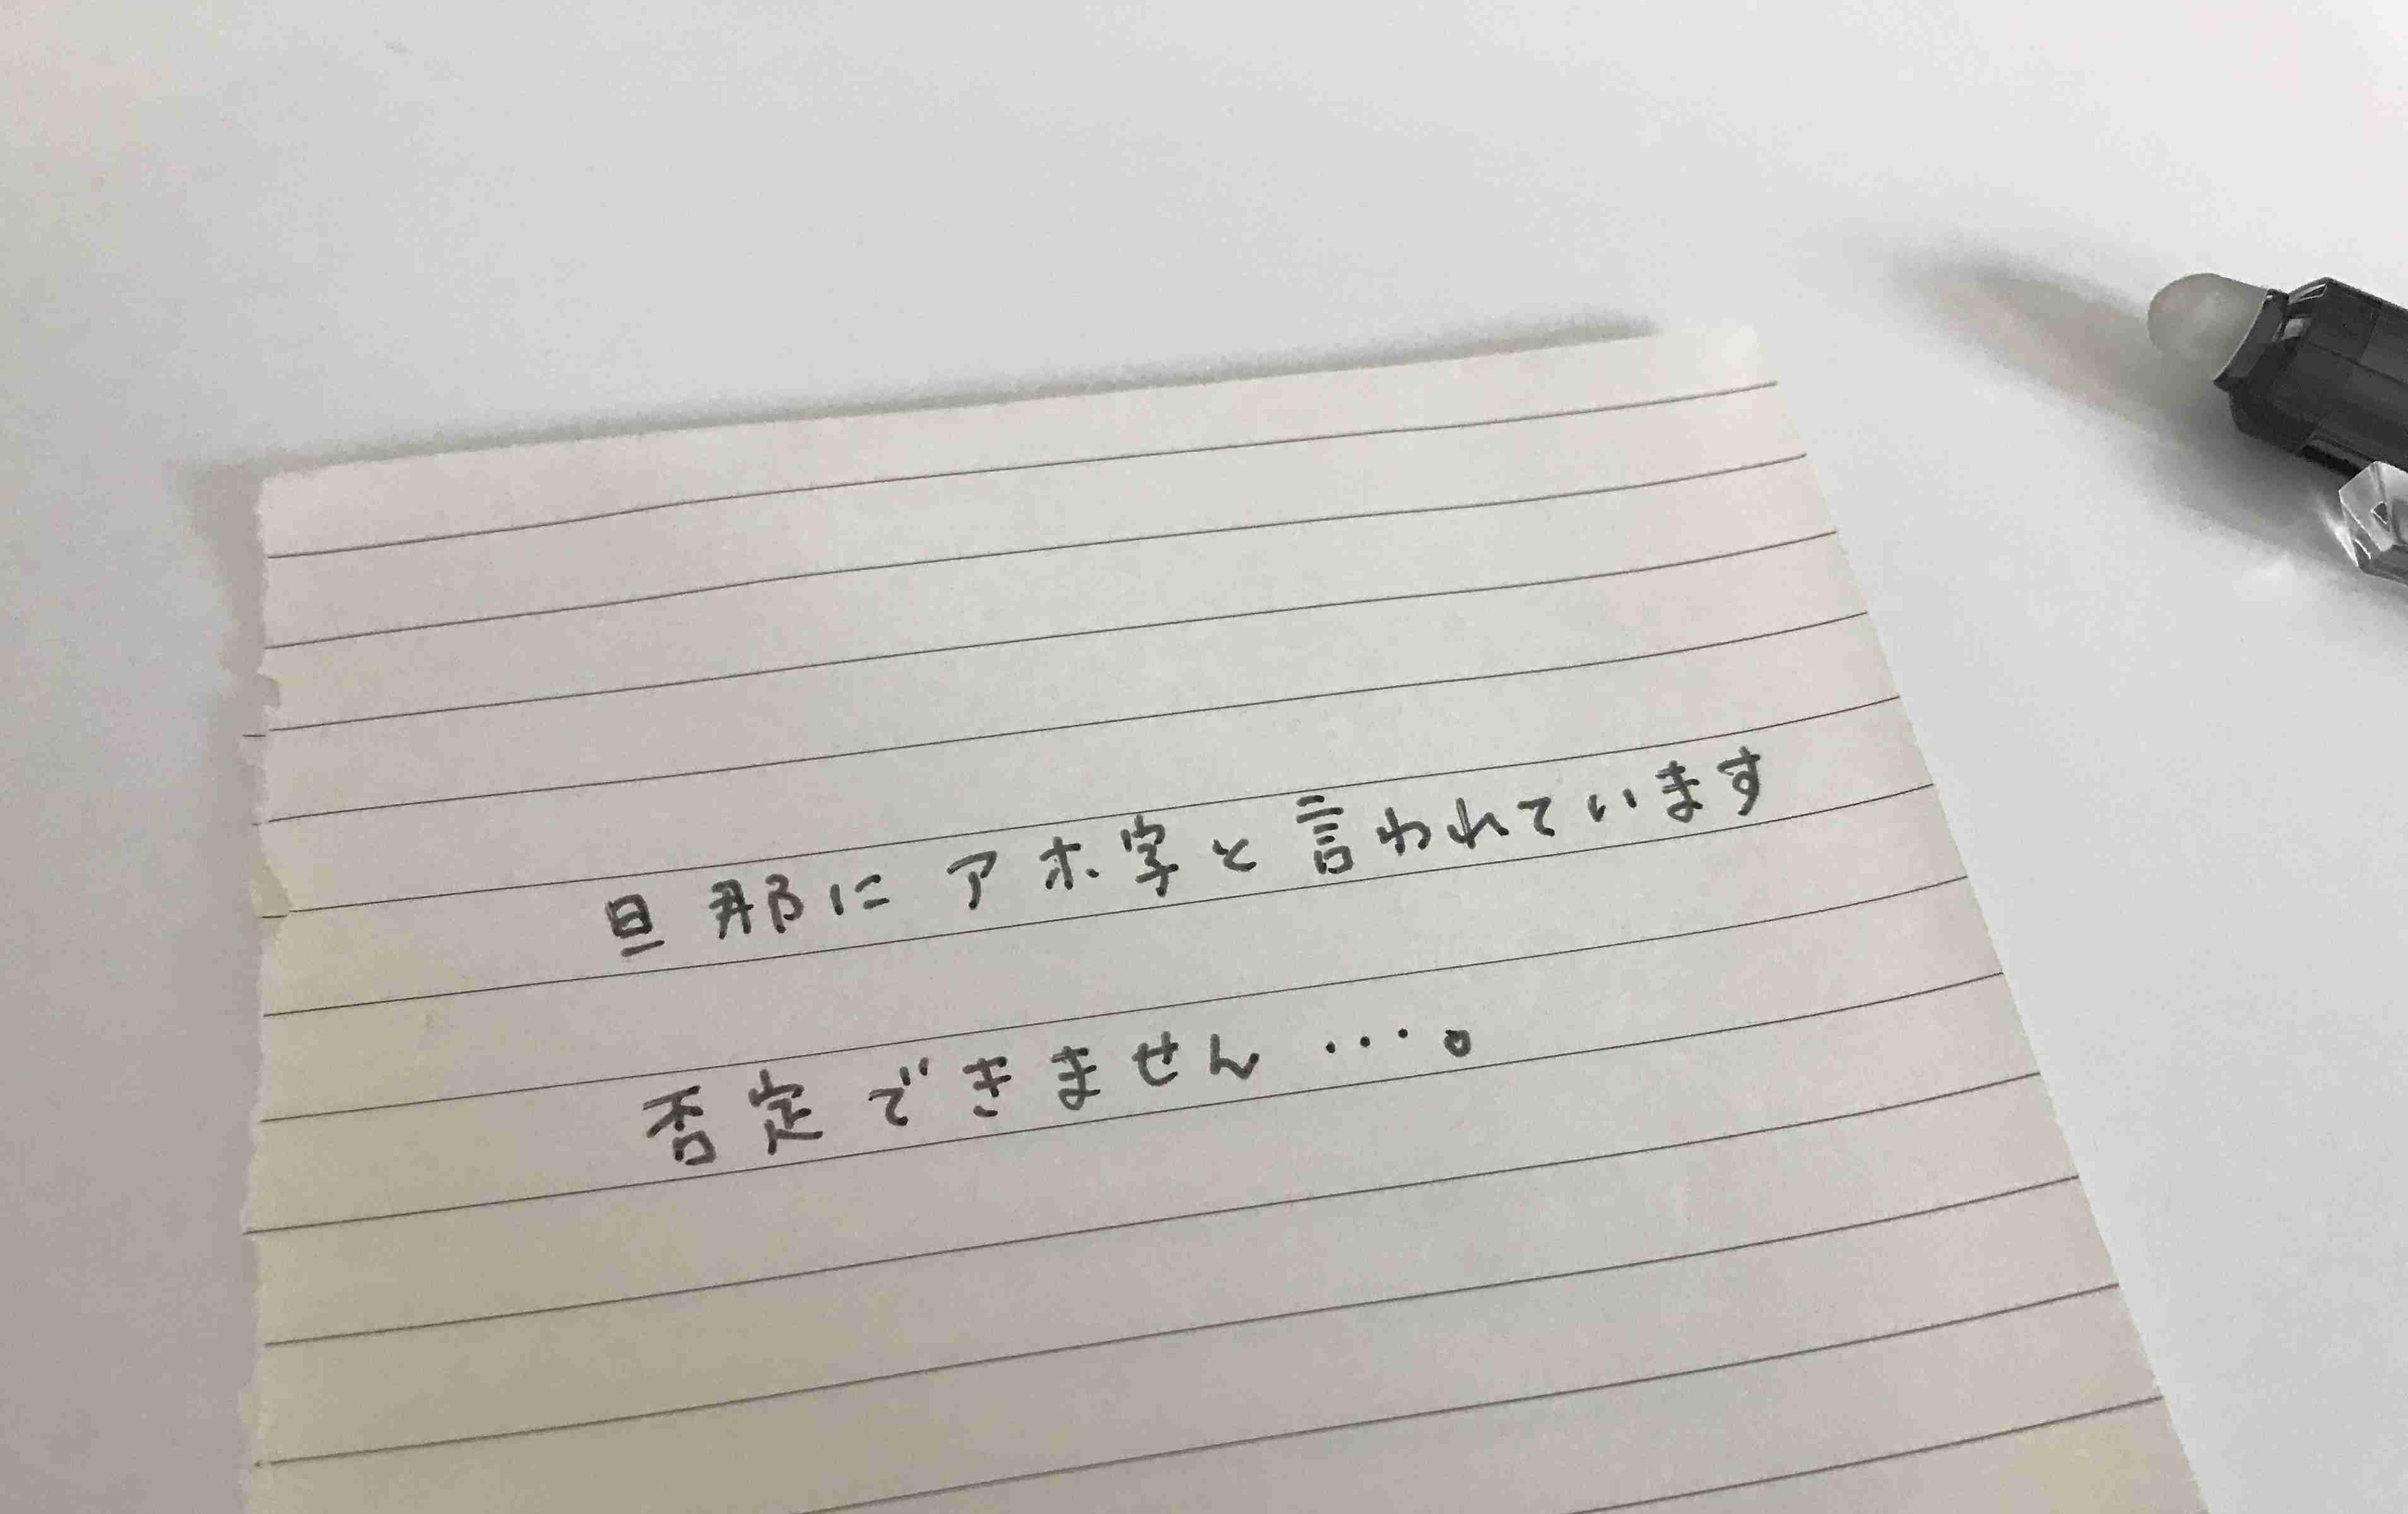 旦那にアホ字と言われています
否定できません…。